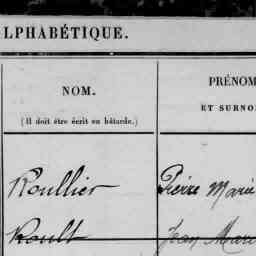 LPHABÉTIQUE.
NOM. PRÉNOM
(Il doit être écrit en bâtarde.) ET SURNO
Roullier Pierre Marie
Roult Jean Marie